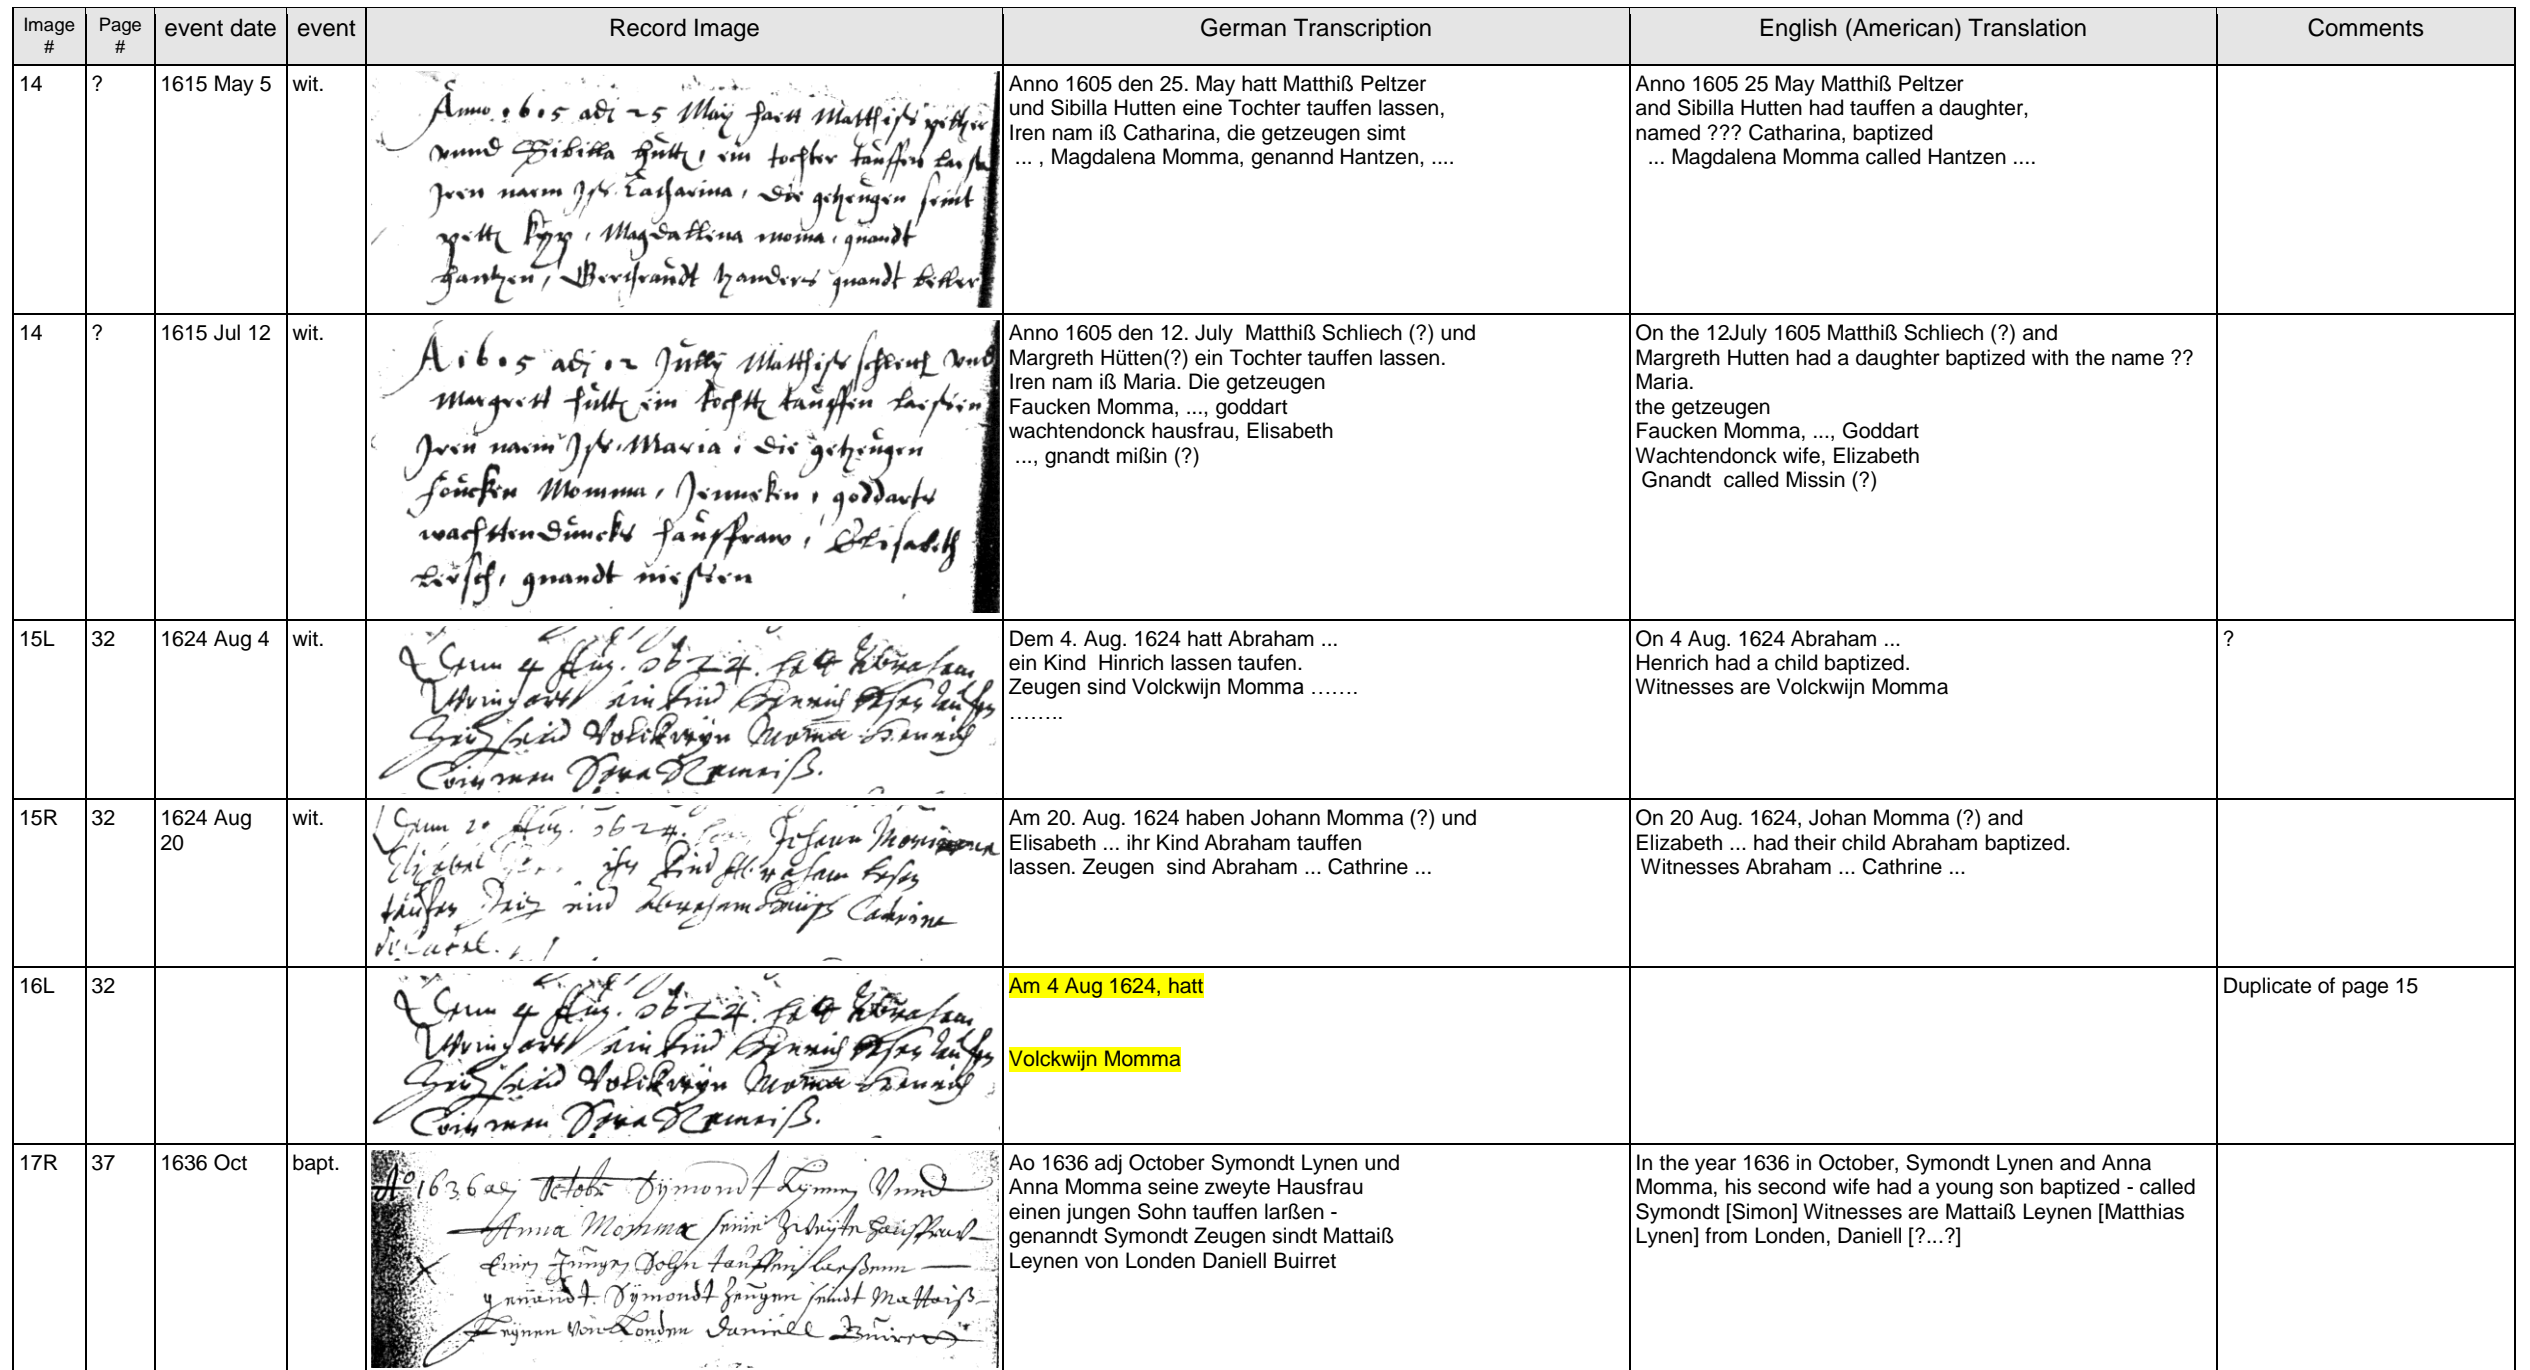 Image # Page # event date event Record Image German Transcription English (American) Translation Comments
14 ? 1615 May 5 wit.
Anno 1605 adj 25 May hatt Matthiß peltzer
vnnd Sibilla hütt, ein tochter tauffen
Iren namm Ist Catharina, die getzeugen seint
kyp, Magdallena moma, gnandt
hantzen, gnandt
Anno 1605 den 25. May hatt Matthiß Peltzer
und Sibilla Hutten eine Tochter tauffen lassen,
Iren nam iß Catharina, die getzeugen simt
... , Magdalena Momma, genannd Hantzen, ....
Anno 1605 25 May Matthiß Peltzer
and Sibilla Hutten had tauffen a daughter,
named ??? Catharina, baptized
... Magdalena Momma called Hantzen ....
14 ? 1615 Jul 12 wit.
A 1605 adj 12 Jully Matthiß vnd
Margrett hütt ein tauffen
Iren namm Ist Maria, die getzeugen
Momma, Jenneken, goddarts
wachttenduncks haußfraw, Elisabeth
gnandt
Anno 1605 den 12. July Matthiß Schliech (?) und
Margreth Hütten(?) ein Tochter tauffen lassen.
Iren nam iß Maria. Die getzeugen
Faucken Momma, ..., goddart
wachtendonck hausfrau, Elisabeth
..., gnandt mißin (?)
On the 12July 1605 Matthiß Schliech (?) and
Margreth Hutten had a daughter baptized with the name ??
Maria.
the getzeugen
Faucken Momma, ..., Goddart
Wachtendonck wife, Elizabeth
Gnandt called Missin (?)
15L 32 1624 Aug 4 wit.
4 Aug. 1624. hatt Abraham
ein kind Henrich
Volckwyn Moma Henrich
Dem 4. Aug. 1624 hatt Abraham ...
ein Kind Hinrich lassen taufen.
Zeugen sind Volckwijn Momma …….
……..
On 4 Aug. 1624 Abraham ...
Henrich had a child baptized.
Witnesses are Volckwijn Momma
?
15R 32 1624 Aug
20
wit.
Aug. 1624. Johann
ihr kind Abraham
Abraham
Am 20. Aug. 1624 haben Johann Momma (?) und
Elisabeth ... ihr Kind Abraham tauffen
lassen. Zeugen sind Abraham ... Cathrine ...
On 20 Aug. 1624, Johan Momma (?) and
Elizabeth ... had their child Abraham baptized.
Witnesses Abraham ... Cathrine ...
16L 32
4 Aug. 1624. hatt Abraham
ein kind Henrich
Volckwyn Moma Henrich
Am 4 Aug 1624, hatt
Volckwijn Momma
Duplicate of page 15
17R 37 1636 Oct bapt.
Ao 1636 adj Octobr Symondt Vnnd
Anna Momma seine Zweyte haußfraw
Einen Jungen Sohn tauffen
genandt Symondt Zeugen seindt Mattaiß
Leynen von Londen Daniell Buirett
Ao 1636 adj October Symondt Lynen und
Anna Momma seine zweyte Hausfrau
einen jungen Sohn tauffen larßen -
genanndt Symondt Zeugen sindt Mattaiß
Leynen von Londen Daniell Buirret
In the year 1636 in October, Symondt Lynen and Anna
Momma, his second wife had a young son baptized - called
Symondt [Simon] Witnesses are Mattaiß Leynen [Matthias
Lynen] from Londen, Daniell [?...?]